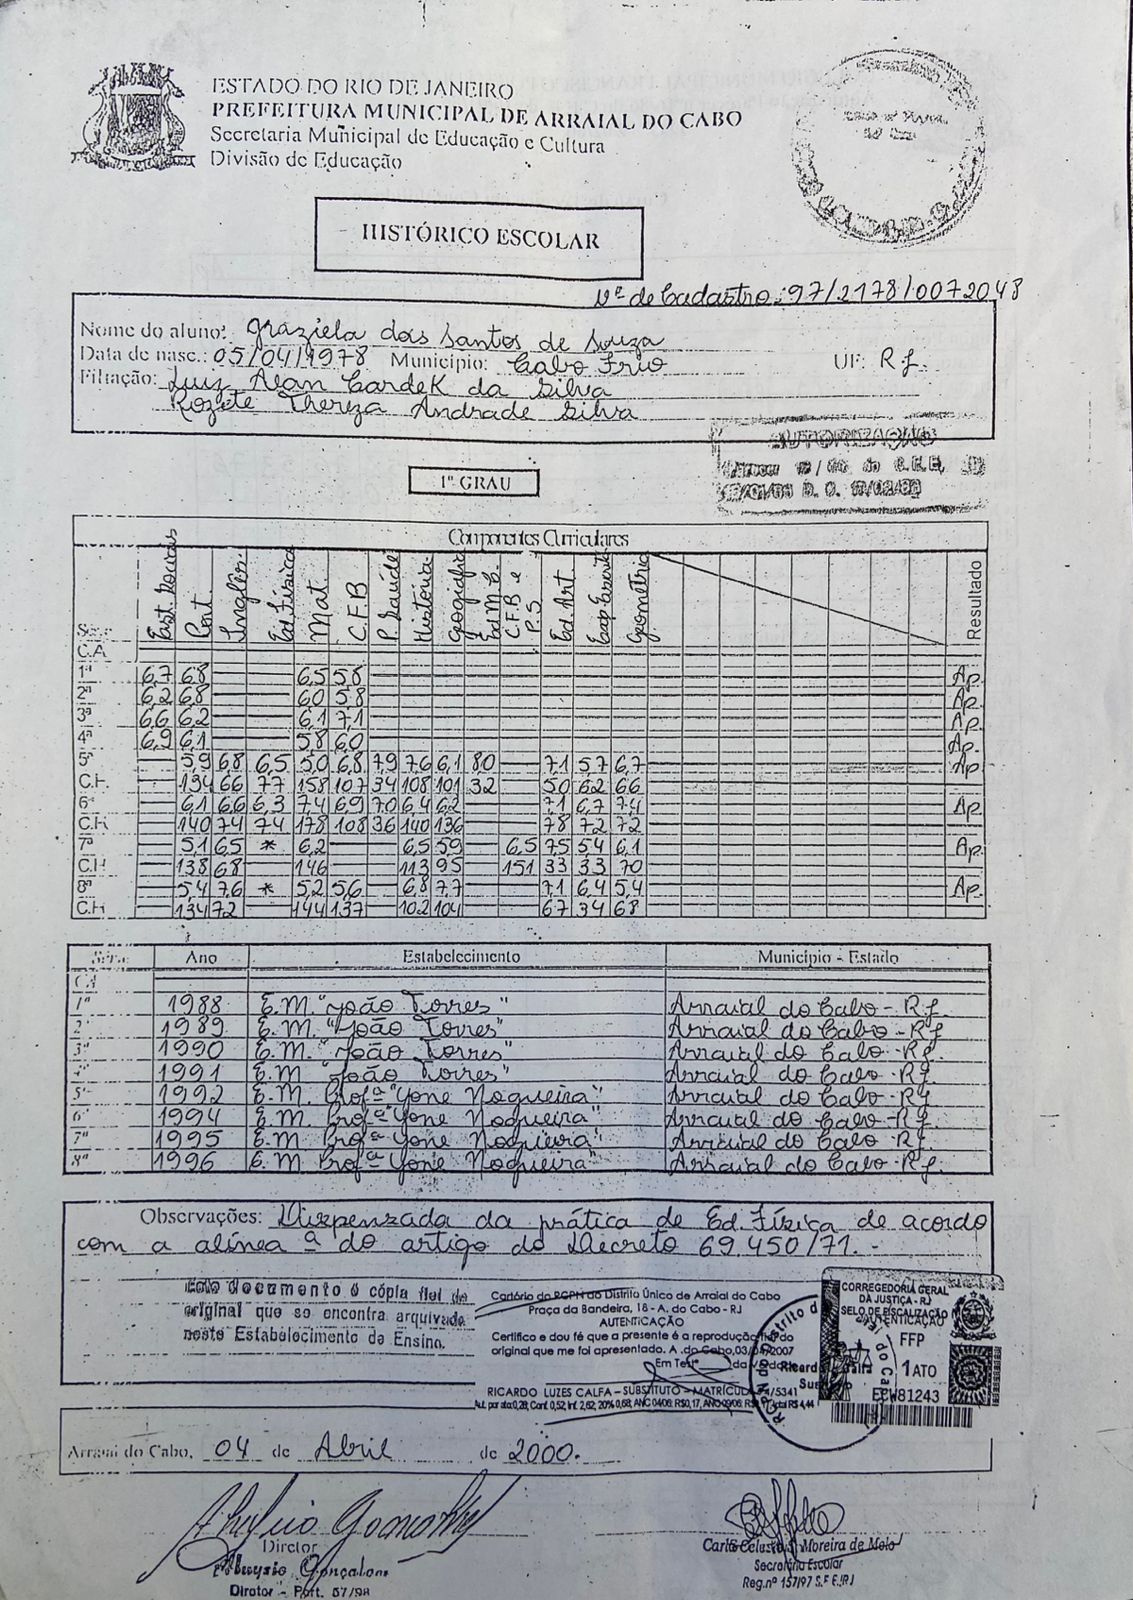 ESTADO DO RIO DE JANEIRO
PREFEITURA MUNICIPAL DE ARRAIAL DO CABO
Secretaria Municipal de Educação e Cultura
Divisão de Educação
HISTÓRICO ESCOLAR
Nº de Cadastro: 97/2178/0072048
Nome do aluno: Graziela dos Santos de Souza
Data de nasc.: 05/04/1978 Município: Cabo Frio UF: RJ.
Filiação: Luiz Alan Cardek da Silva
Rozete Thereza Andrade Silva
AUTORIZAÇÃO
1º GRAU
Componentes Curriculares
Série Est. Sociais Port. Inglês Ed. Física Mat. C.F.B P. Saúde História Geografia Ed M.C. C.F.B e P.S Ed. Art Exp Escrita Geometria Resultado
C.A
1ª 6,7 6,8 6,5 5,8 Ap.
2ª 6,2 6,8 6,0 5,8 Ap.
3ª 6,6 6,2 6,1 7,1 Ap.
4ª 6,9 6,1 5,8 6,0 Ap.
5ª 5,9 6,8 6,5 5,0 6,8 7,9 7,6 6,1 8,0 7,1 5,7 6,7 Ap
C.H. 134 66 77 158 107 34 108 101 32 50 62 66
6ª 6,1 6,6 6,3 7,4 6,9 7,0 6,4 6,2 7,1 6,7 7,4 Ap.
C.H 140 74 74 178 108 36 140 136 78 72 72
7ª 5,1 6,5 * 6,2 6,5 5,9 6,5 7,5 5,4 6,1 Ap.
C.H 138 68 146 113 95 151 33 33 70
8ª 5,4 7,6 * 5,2 5,6 6,8 7,7 7,1 6,4 5,4 Ap.
C.H. 134 72 144 137 102 104 67 34 68
Série Ano Estabelecimento Município - Estado
CA
1ª 1988 E.M. "João Torres" Arraial do Cabo - RJ.
2ª 1989 E.M. "João Torres" Arraial do Cabo - RJ
3ª 1990 E.M. "João Torres" Arraial do Cabo - RJ.
4ª 1991 E.M. "João Torres" Arraial do Cabo - RJ.
5ª 1992 E.M. Profª "Yone Nogueira" Arraial do Cabo - RJ
6ª 1994 E.M. Profª "Yone Nogueira" Arraial do Cabo - RJ.
7ª 1995 E.M. Profª "Yone Nogueira" Arraial do Cabo - RJ.
8ª 1996 E.M. Profª "Yone Nogueira" Arraial do Cabo - RJ.
Observações: Dispensada da prática de Ed. Física de acordo
com a alínea ª do artigo do Decreto 69.450/71.-
Este documento é cópia fiel do
original que se encontra arquivado
neste Estabelecimento de Ensino.
Cartório do RCPN do Distrito Único de Arraial do Cabo
Praça da Bandeira, 18 - A. do Cabo - RJ
AUTENTICAÇÃO
Certifico e dou fé que a presente é a reprodução fiel do
original que me foi apresentado. A. do Cabo, 03/04/2007
Em Testº da verdade
RICARDO LUZES CALFA - SUBSTITUTO - MATRÍCULA
CORREGEDORIA GERAL
DA JUSTIÇA - RJ
SELO DE FISCALIZAÇÃO
AUTENTICAÇÃO
FFP
1 ATO
Arraial do Cabo, 04 de Abril de 2000.
Diretor
Aluysio Gonçalves
Diretor - Port. 57/98
Carla Celeste S. Moreira de Melo
Secretária Escolar
Reg.nº 157/97 S.E E./RJ